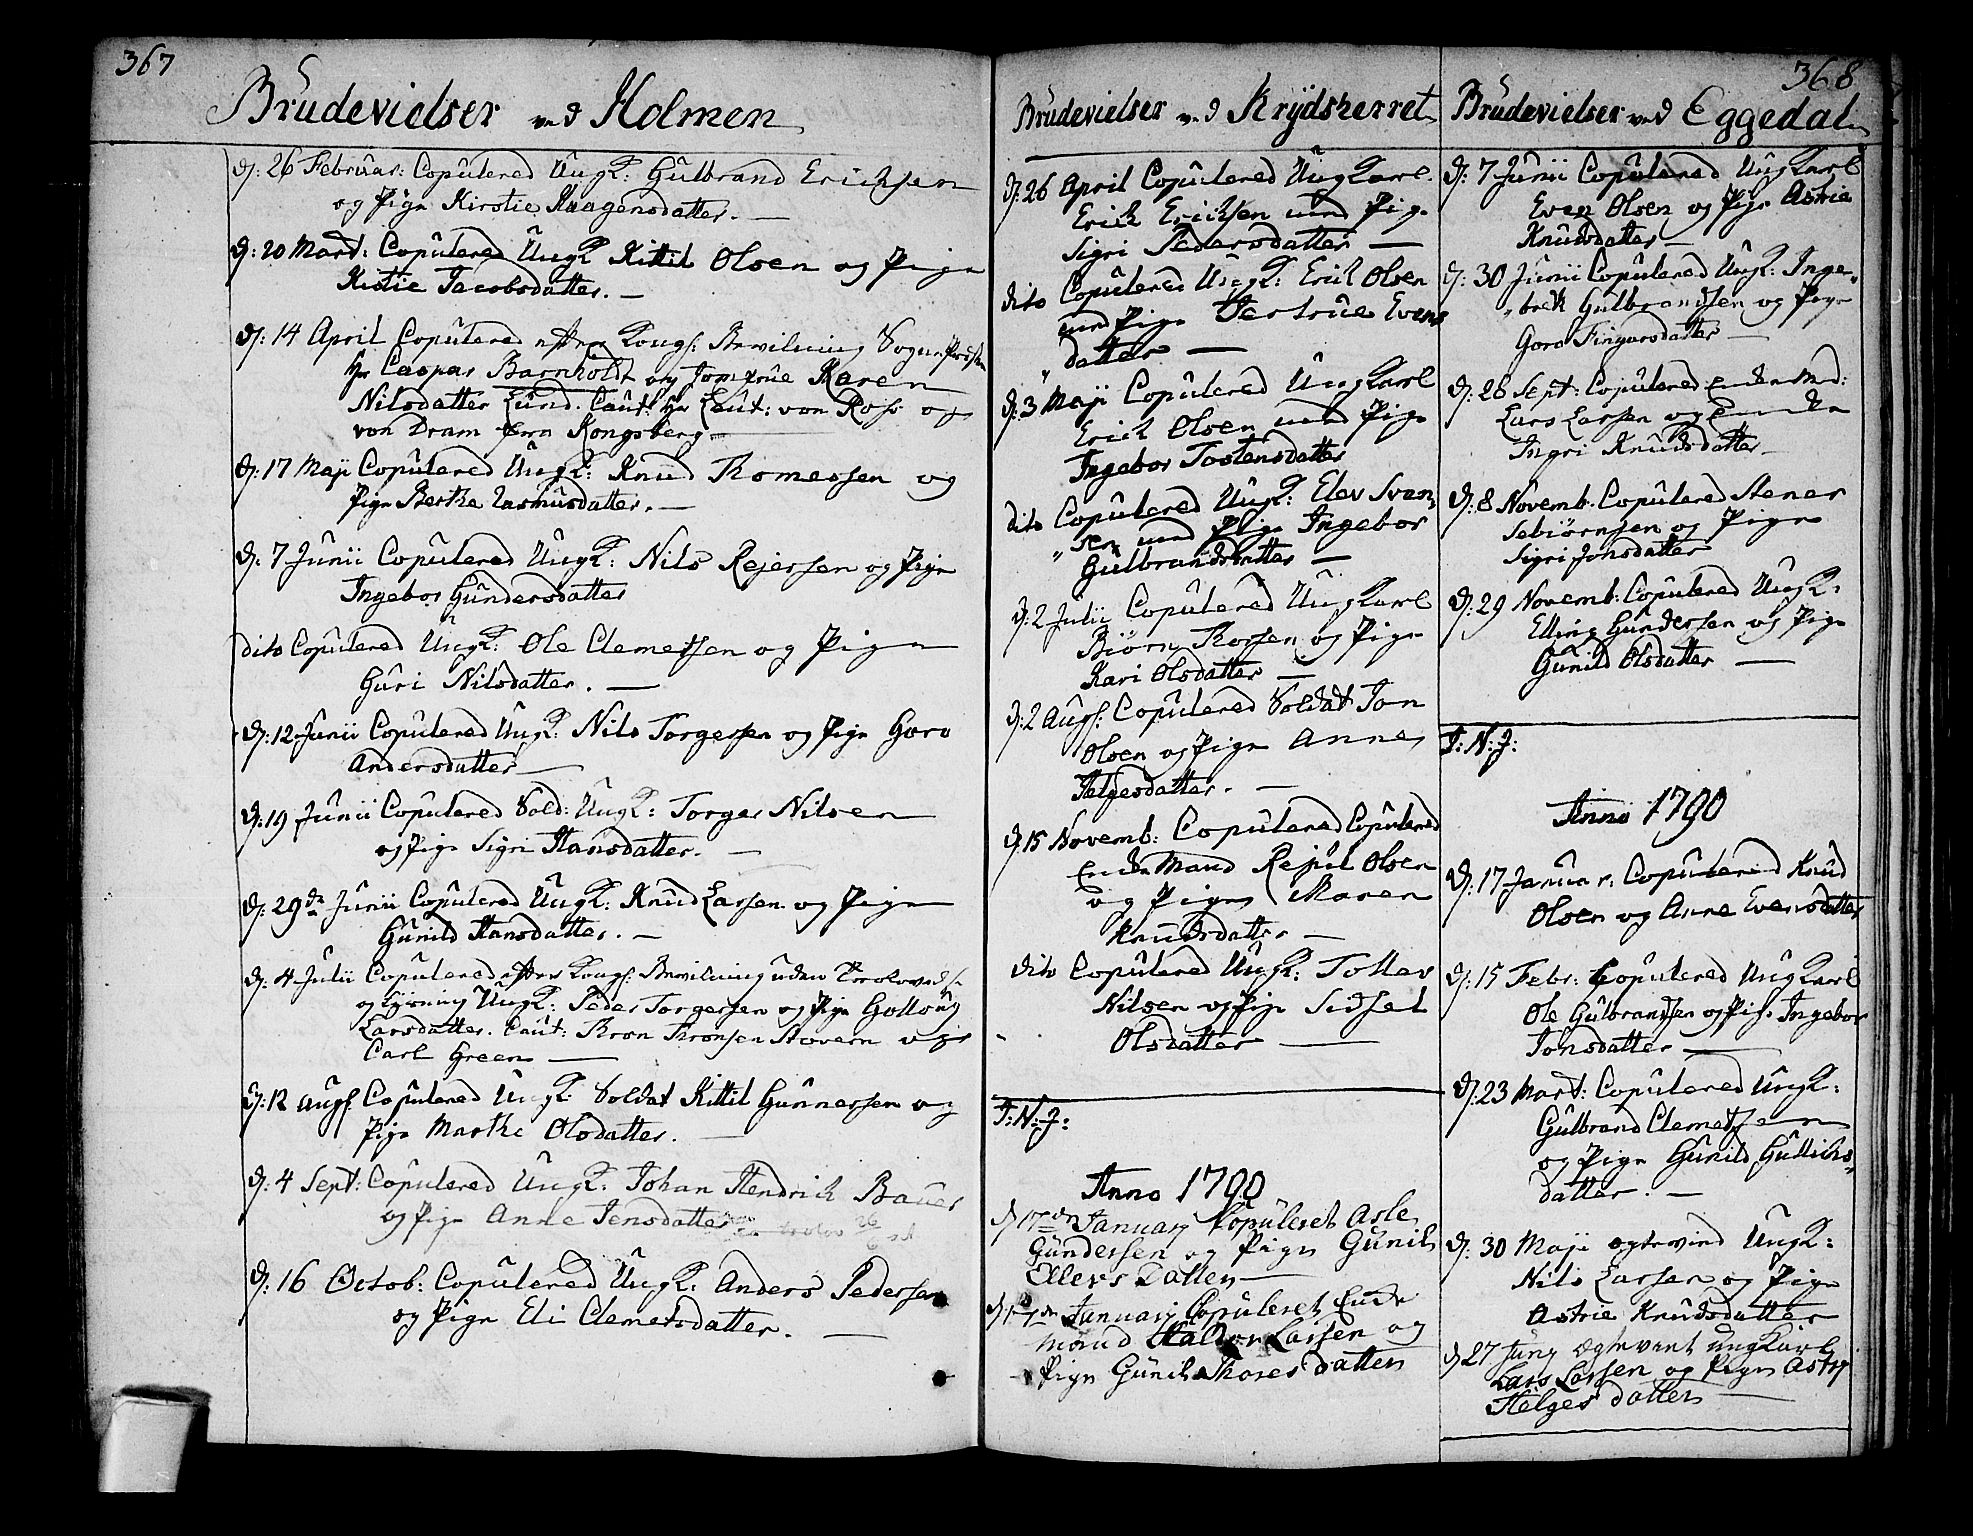 367
Brudevielser ved Holmen
d: 26 Februar: Copulered Ungk: Gulbrand Erichsen
og Pige Kirstie Haagensdatter. —
d: 20 Mart: Copulered Ungk Kittil Olsen og Pige
Kistie Jacobsdatter. —
d: 14 April Copulered efter Kongl: Bevilning Sogne Præsten
Hr Caspar Barnholdt og Jomfrue Karen
Nilsdatter Lund. Caut: Hr Leut: von Ros og
von Dram fra Kongsberg —
d: 17 Maji Copulered Ungk: Knud Thomessen og
Pige Berthe Rasmusdatter. —
d: 7 Junii Copulered Ungk: Nils Rejersen og Pige
Ingebor Gundersdatter
dito Copulered Ungk: Ole Clemetsen og Pige
Guri Nilsdatter. —
d: 12 Junii Copulered Ungk: Nils Torgersen og Pige Goro
Andersdatter —
d: 19 Junii Copulered Sold: Ungk: Torger Nilsen
og Pige Sigri Hansdatter. —
d: 29de Junii Copulered Ungk: Knud Larsen og Pige
Gunild Hansdatter. —
d: 4 Julii Copulered efter Kongl: Bevilning uden Trolovelse
og Lysning Ungk: Peder Torgersen og Pige Gollaug
Larsdatter. Caut: Thron Thronsen Stovern og
Carl Green —
d: 12 Augs Copulered Ungk: Soldat Kittil Gunnersen og
Pige Marthe Olsdatter. —
d: 4 Sept: Copulered Ungk: Johan Hendrich Bauer
og Pige Anne Jensdatter
d: 16 Octob: Copulered Ungk: Anders Pedersen
og Pige Eli Clemetsdatter. —
Brudevielser ved Krydsherret
d: 26 April Copulered Ungkarl
Erich Erichsen med Pige
Sigri Pedersdatter —
dito Copulered Ungk: Erich Olsen
med Pige Gertrue Evens
„ datter —
d: 3 Maji Copulered Ungkarl
Erich Olsen med Pige
Ingebor Tostensdatter
dito Copulered Ungk: Elev Sven„
„ sen med Pige Ingebor
Gulbrandsdatter —
d: 2 Julii Copulered Ungkarl
Biørn Thorsen og Pige
Kari Olsdatter —
d: 2 Augs: Copulered Soldat Jon
Olsen og Pige Anne
Helgesdatter. —
d: 15 Novemb: Copulered Copulered
Enke Mand Rejul Olsen
og Pige Maren
Knudsdatter —
dito Copulered Ungk: Tollev
Nilsen og Pige Sidsel
Olsdatter —
I: N: J:
Anno 1790
d 17de January Copuleret Asle
Gundersen og Pige Gunil
Ellevs Datter —
d 17de January Copuleret Enke
mand Haldor Larsen og
Pige Gunil Thores datter
368
Brudevielser ved Eggedal
d: 7 Junii Copulered Ungkarl
Even Olsen og Pige Astrie
Knudsdatter —
d: 30 Junii Copulered Ungk: Inge„
„breth Gulbrandsen og Pige
Goro Fingarsdatter —
d: 26 Sept: Copulered Enkemd:
Lars Larsen og Enken
Ingri Knudsdatter —
d: 8 Novemb. Copulered Stener
Sebiørnsen og Pige
Sigri Jonsdatter
d: 29 Novemb: Copulered Ungk:
Elling Gundersen og Pige
Gunild Olsdatter —
I: N: J:
Anno 1790
d: 17 Januar: Copulered Knud
Olsen og Anne Evensdatter
d: 15 Febr: Copulered Ungkarl
Ole Gulbrandsen og Pig. Ingebor
Jonsdatter —
d: 23 Mart: Copulered Ungk:
Gulbrand Clemetsen
og Pige Gunild Gullichs„
datter. —
d: 30 Maji egtevied Ungk:
Nils Larsen og Pige
Astrie Knudsdatter
d 27 Juny Egteviet ungkarl
Lars Larsen og Pige Astry
Helges datter —